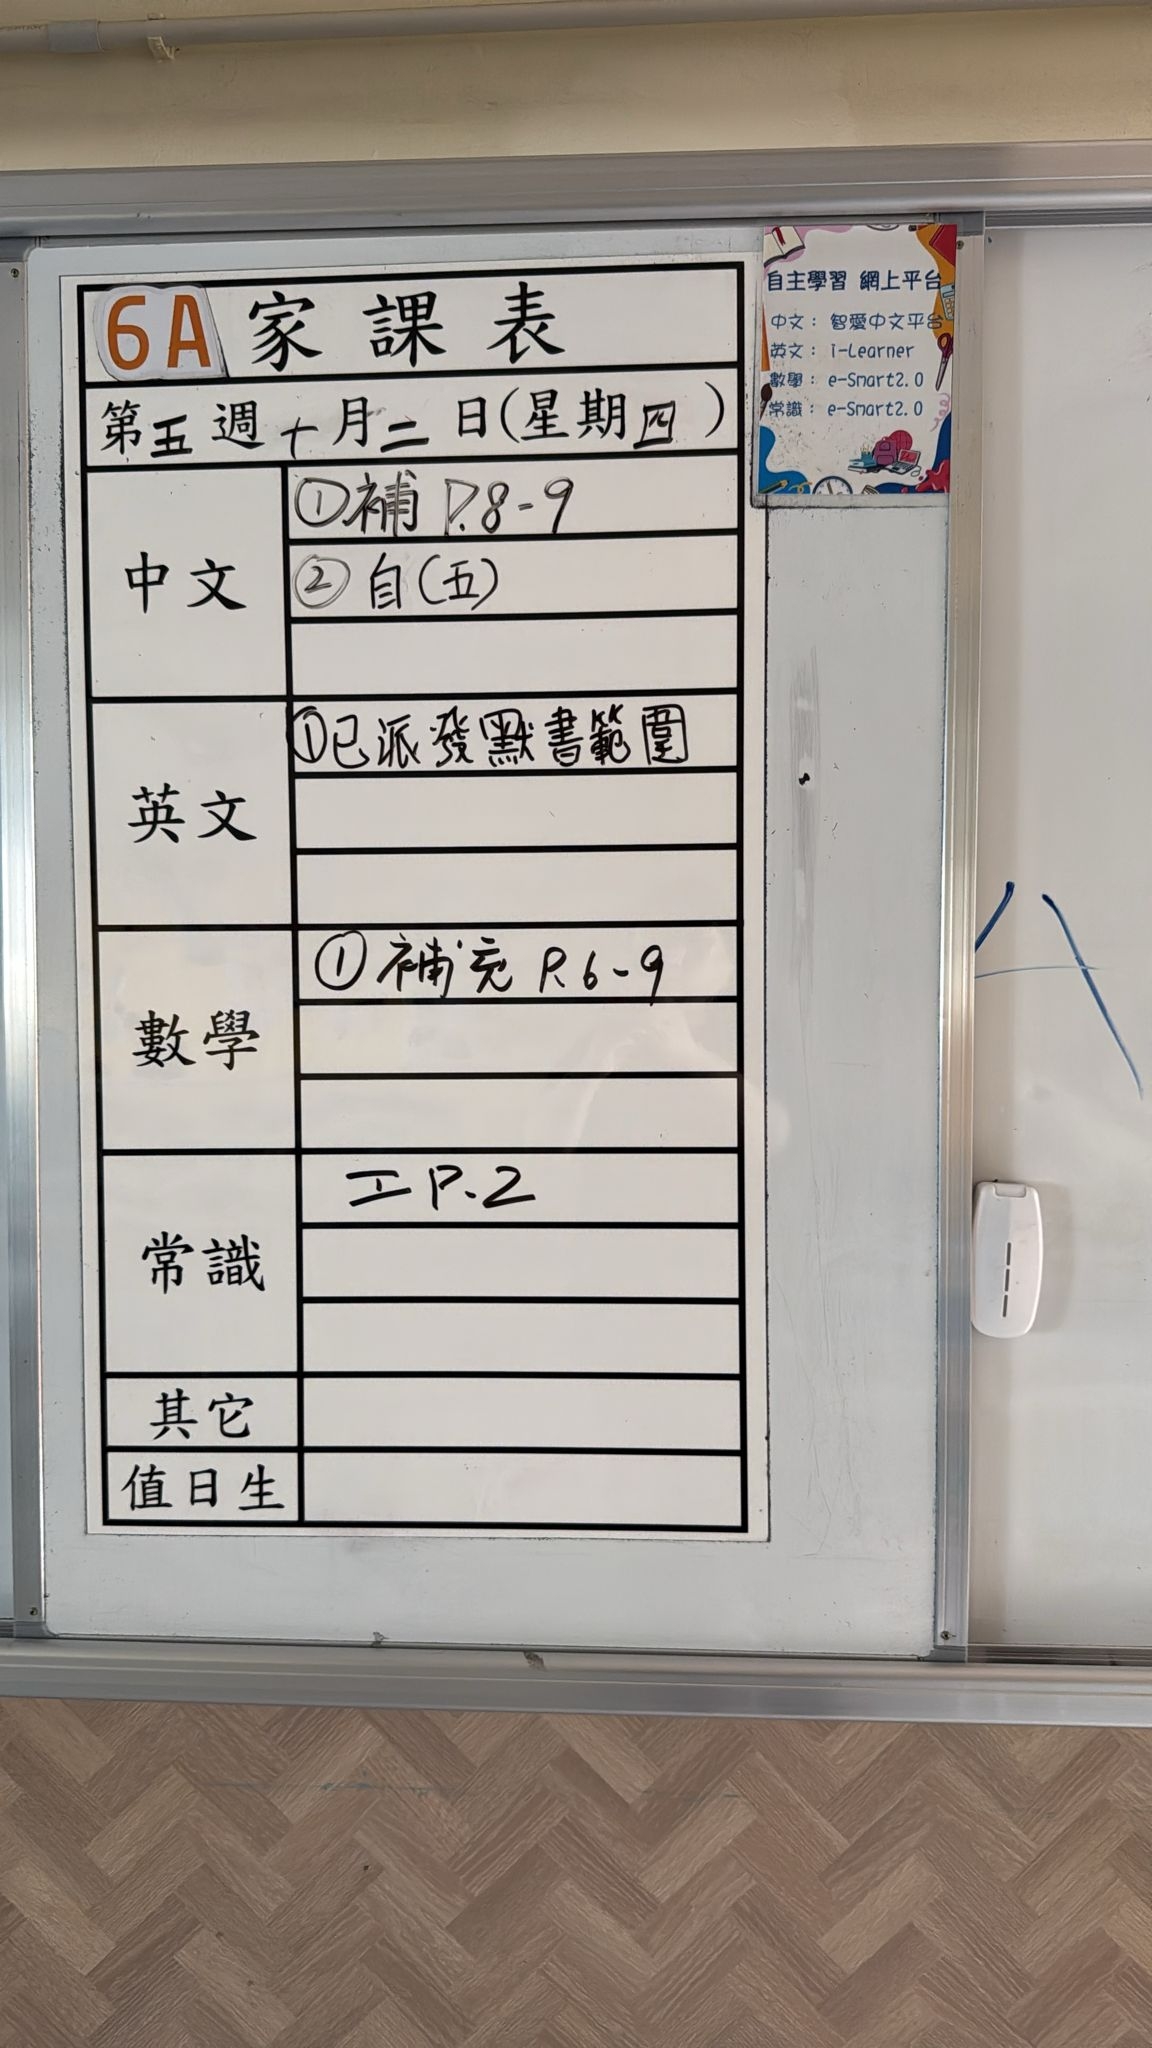 6A 家課表
第五週十月二日(星期四)
中文
①補 P.8-9
②自(五)
英文
①已派發默書範圍
數學
①補充 P.6-9
常識
工 P.2
其它
值日生
自主學習 網上平台
中文： 智愛中文平台
英文： i-Learner
數學： e-Smart2.0
常識： e-Smart2.0